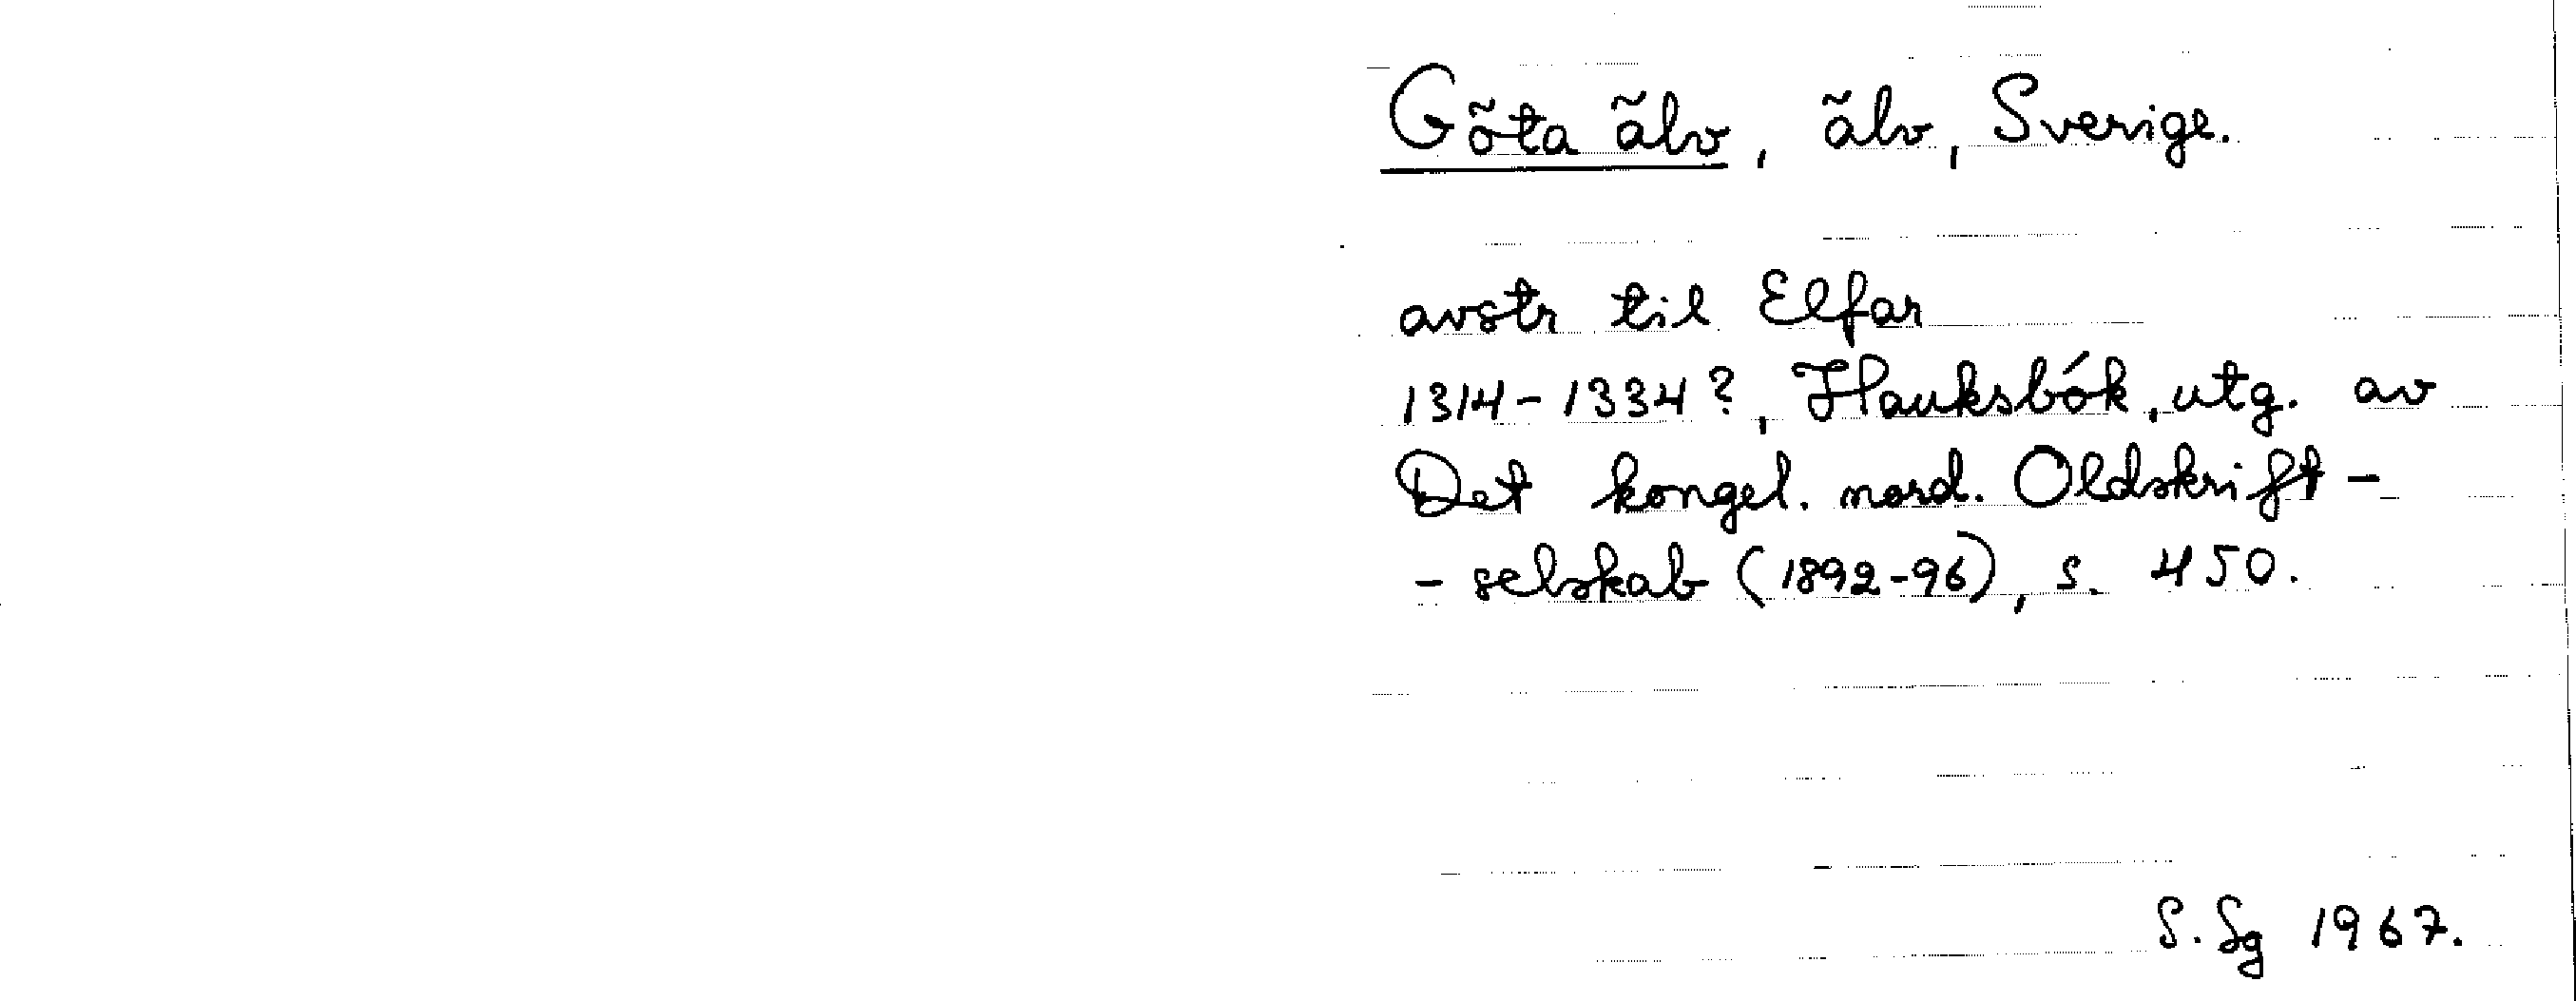 Göta älv, älv, Sverige.
avstr til Elfar
1314-1334?, Hauksbók, utg. av
Det kongel. nord. Oldskrift-
- selskab (1892-96), s. 450.
S. Sg 1967.